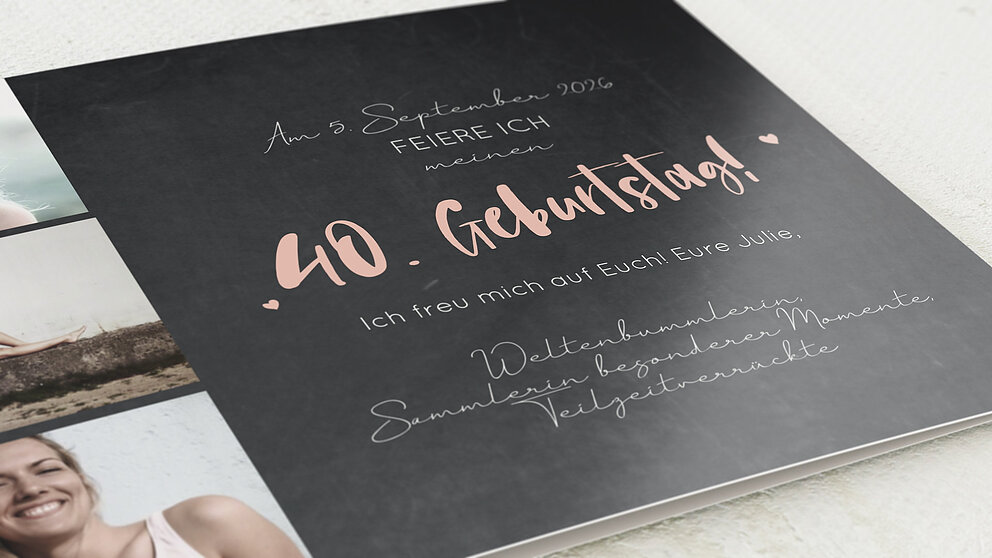 Am 5. September 2026
FEIERE ICH
meinen
40. Geburtstag!
Ich freu mich auf Euch! Eure Julie,
Weltenbummlerin,
Sammlerin besonderer Momente,
Teilzeitverrückte